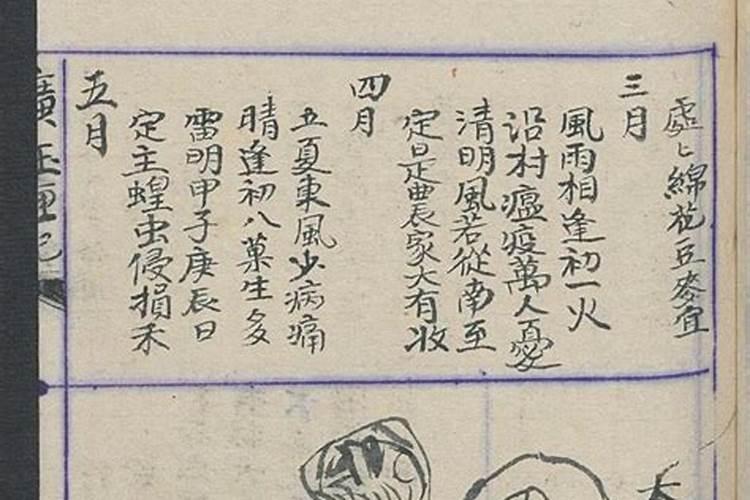 處〻綿花豆麥宜
三月
風雨相逢初一火
沿村瘟疫萬人憂
清明風若從南至
定是農家大有收
四月
立夏東風少病痛
晴逢初八菓生多
雷明甲子庚辰日
定主蝗虫侵損禾
五月
廣玉匣記